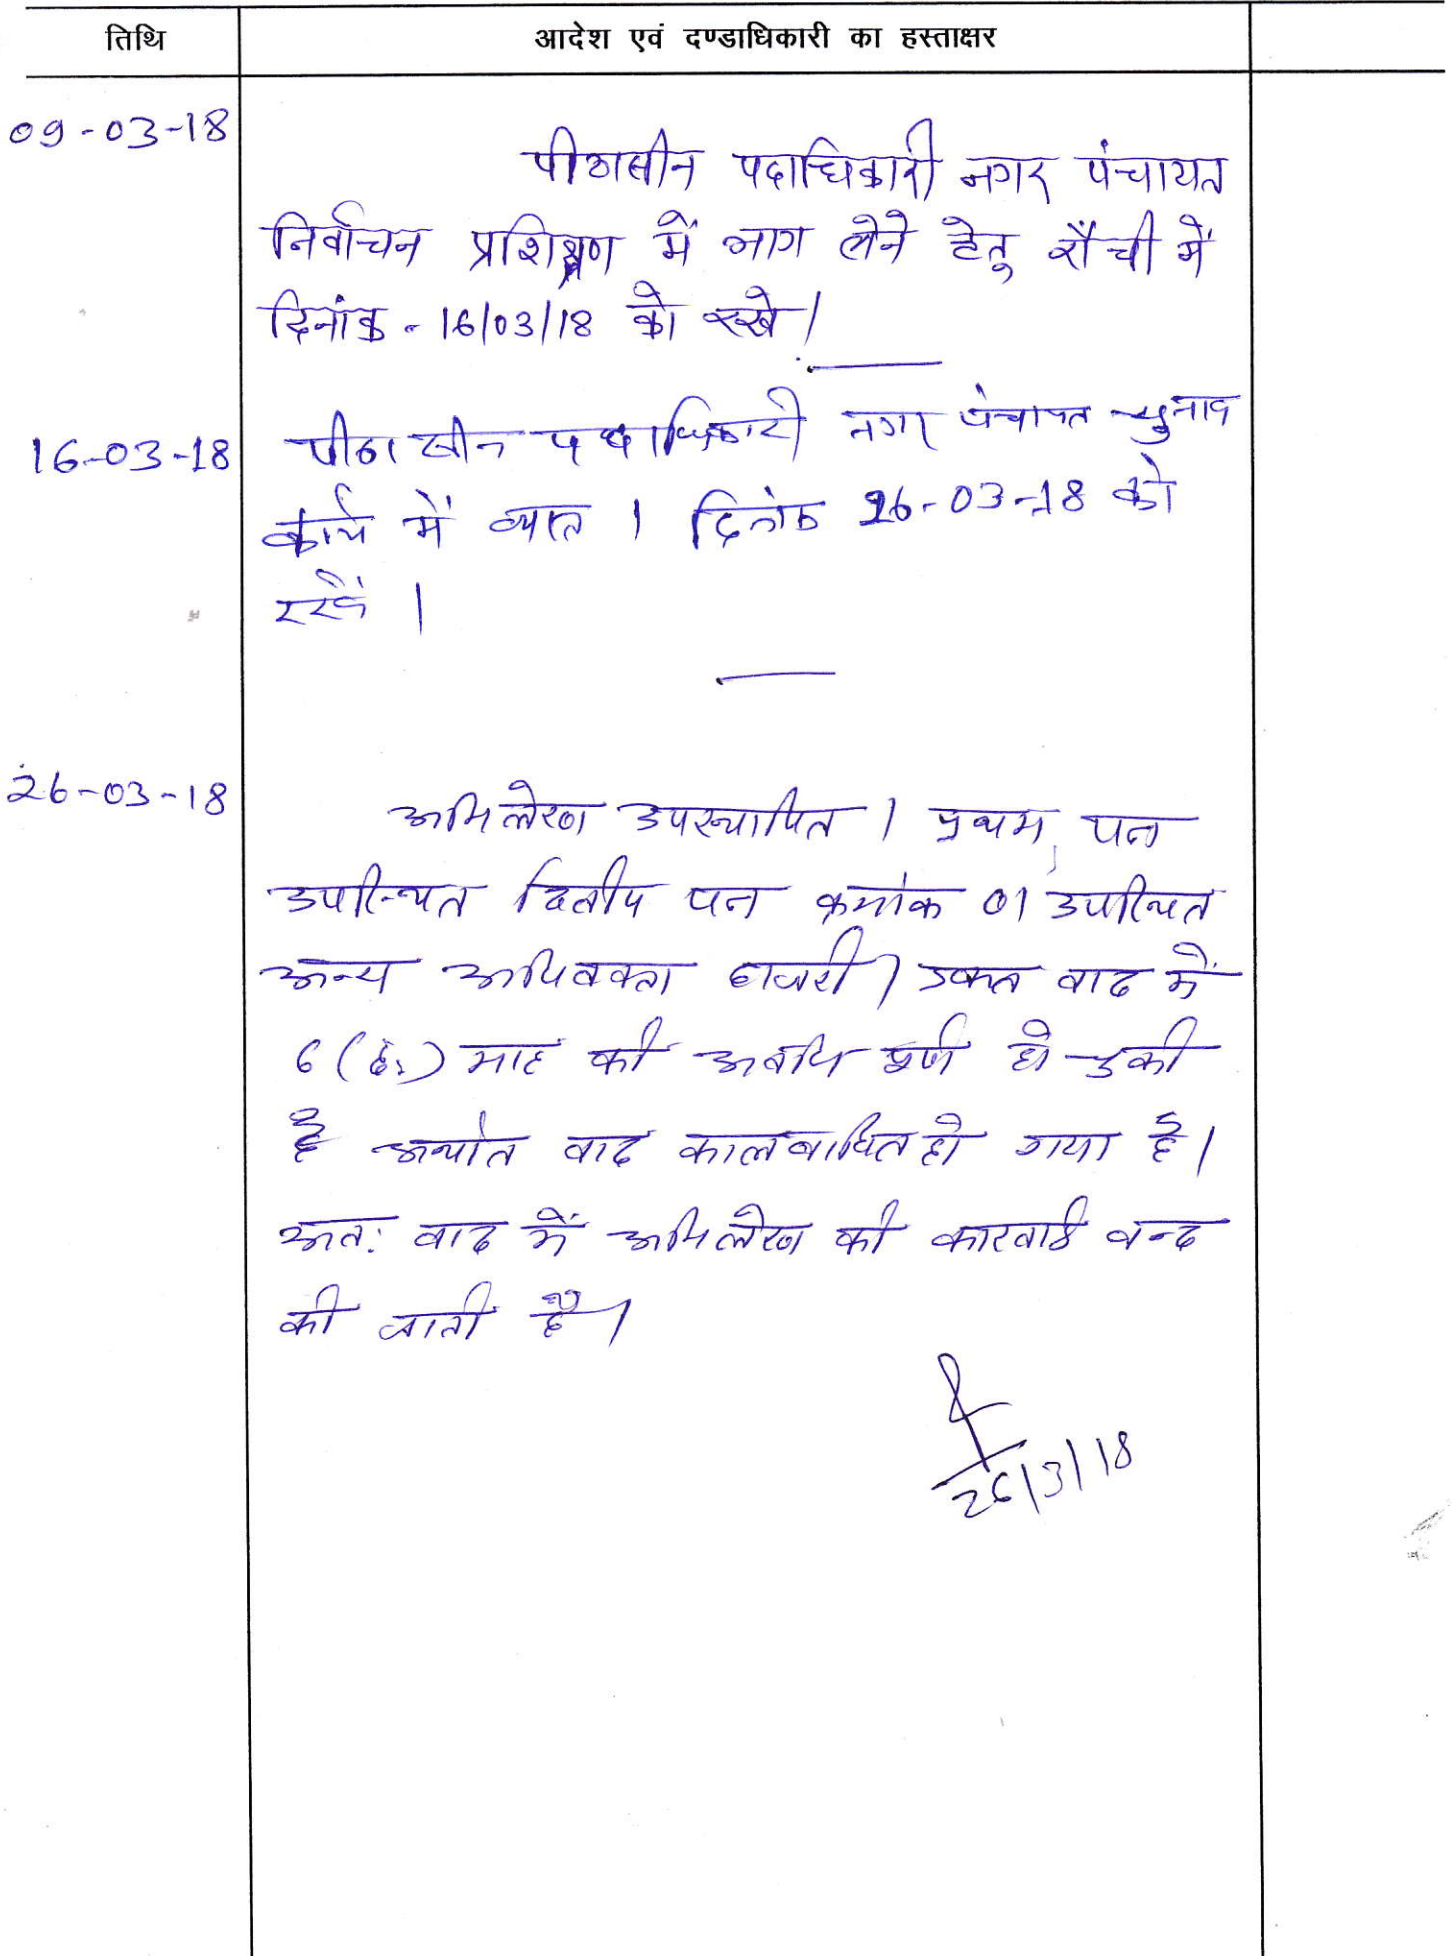 तिथि आदेश एवं दण्डाधिकारी का हस्ताक्षर
09-03-18
पीठासीन पदाधिकारी नगर पंचायत
निर्वाचन प्रशिक्षण में भाग लेने हेतु राँची में
दिनांक - 16/03/18 को रखे।
16-03-18 पीठासीन पदाधिकारी नगर पंचायत चुनाव
कार्य में व्यस्त । दिनांक 26-03-18 को
रखें ।
26-03-18
अभिलेख उपस्थापित । प्रथम पक्ष
उपस्थित द्वितीय पक्ष क्रमांक 01 उपस्थित
अन्य अधिवक्ता हाजरी। उक्त वाद में
6 (छः) माह की अवधि पूर्ण हो चुकी
है अर्थात वाद कालबाधित हो गया है।
अतः वाद में अभिलेख की कारवाई बन्द
की जाती है।
26/3/18